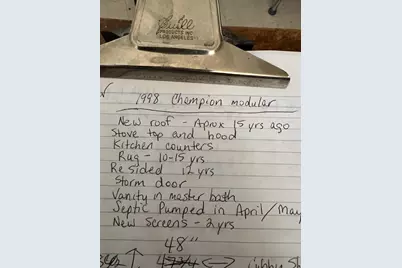 Saddle
PRODUCTS INC
LOS ANGELES
1998 Champion modular
New roof - Aprox 15 yrs ago
Stove top and hood
Kitchen counters
Rug - 10-15 yrs
Resided 12 yrs
Storm door
Vanity in master bath
Septic Pumped in April/May
New Screens - 2 yrs
48"